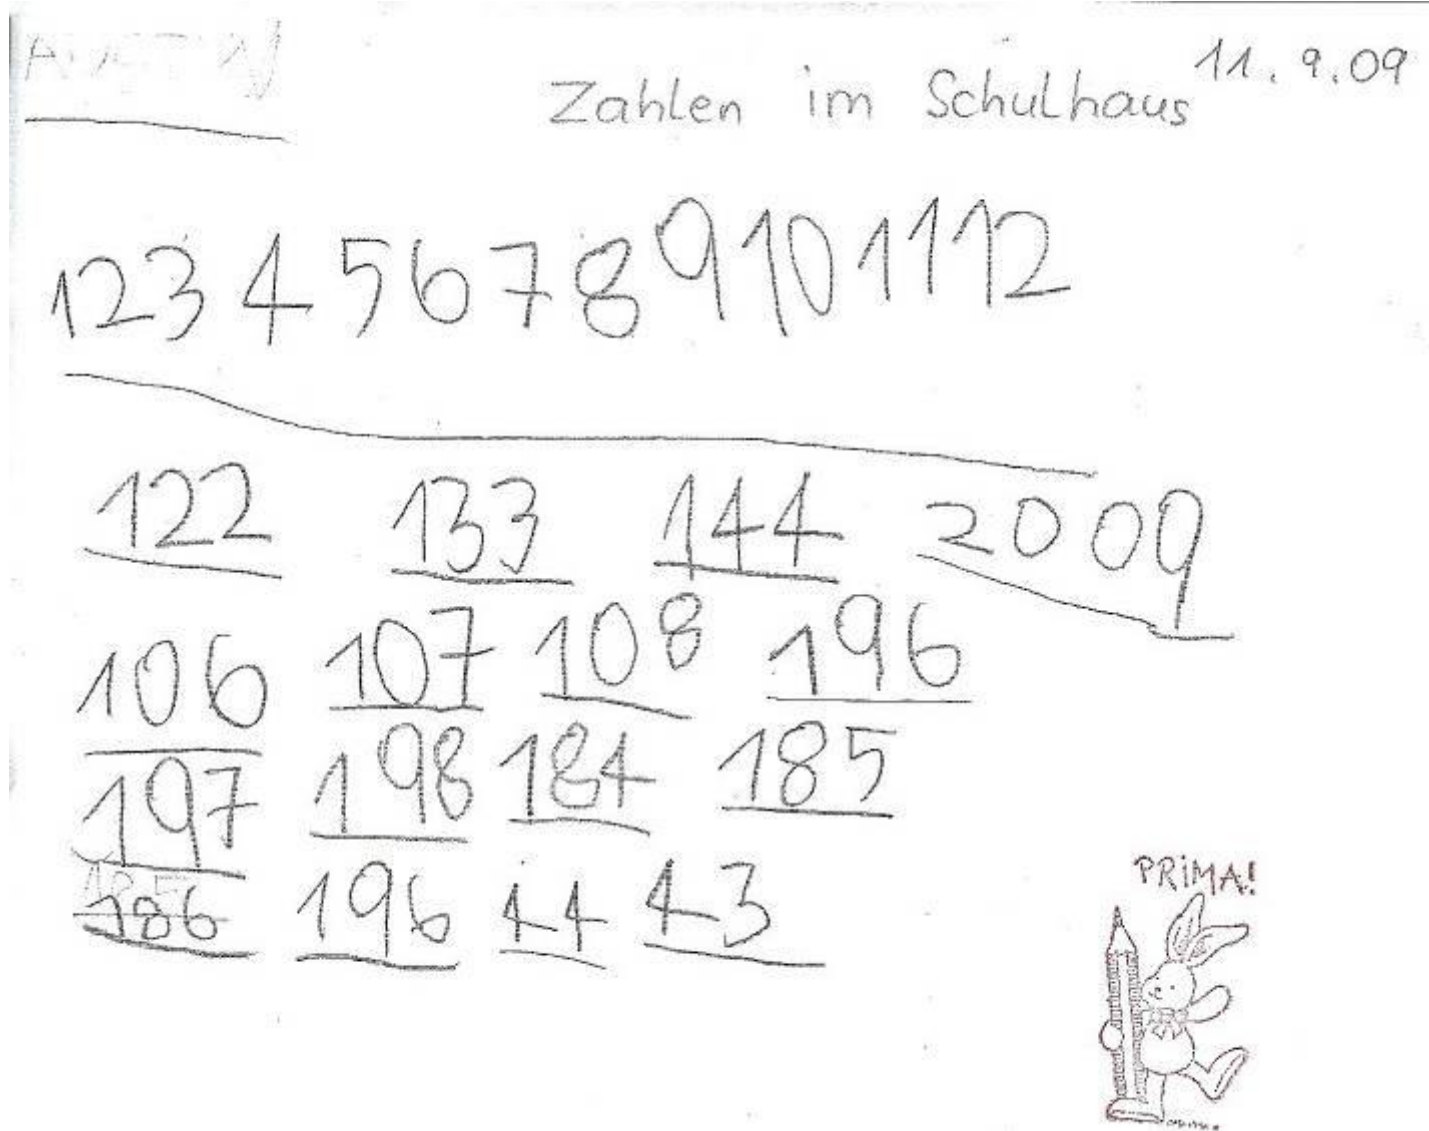 11.9.09
Zahlen im Schulhaus
1 2 3 4 5 6 7 8 9 10 11 12
122 133 144 2009
106 107 108 196
197 198 184 185
186 196 44 43
PRiMA!